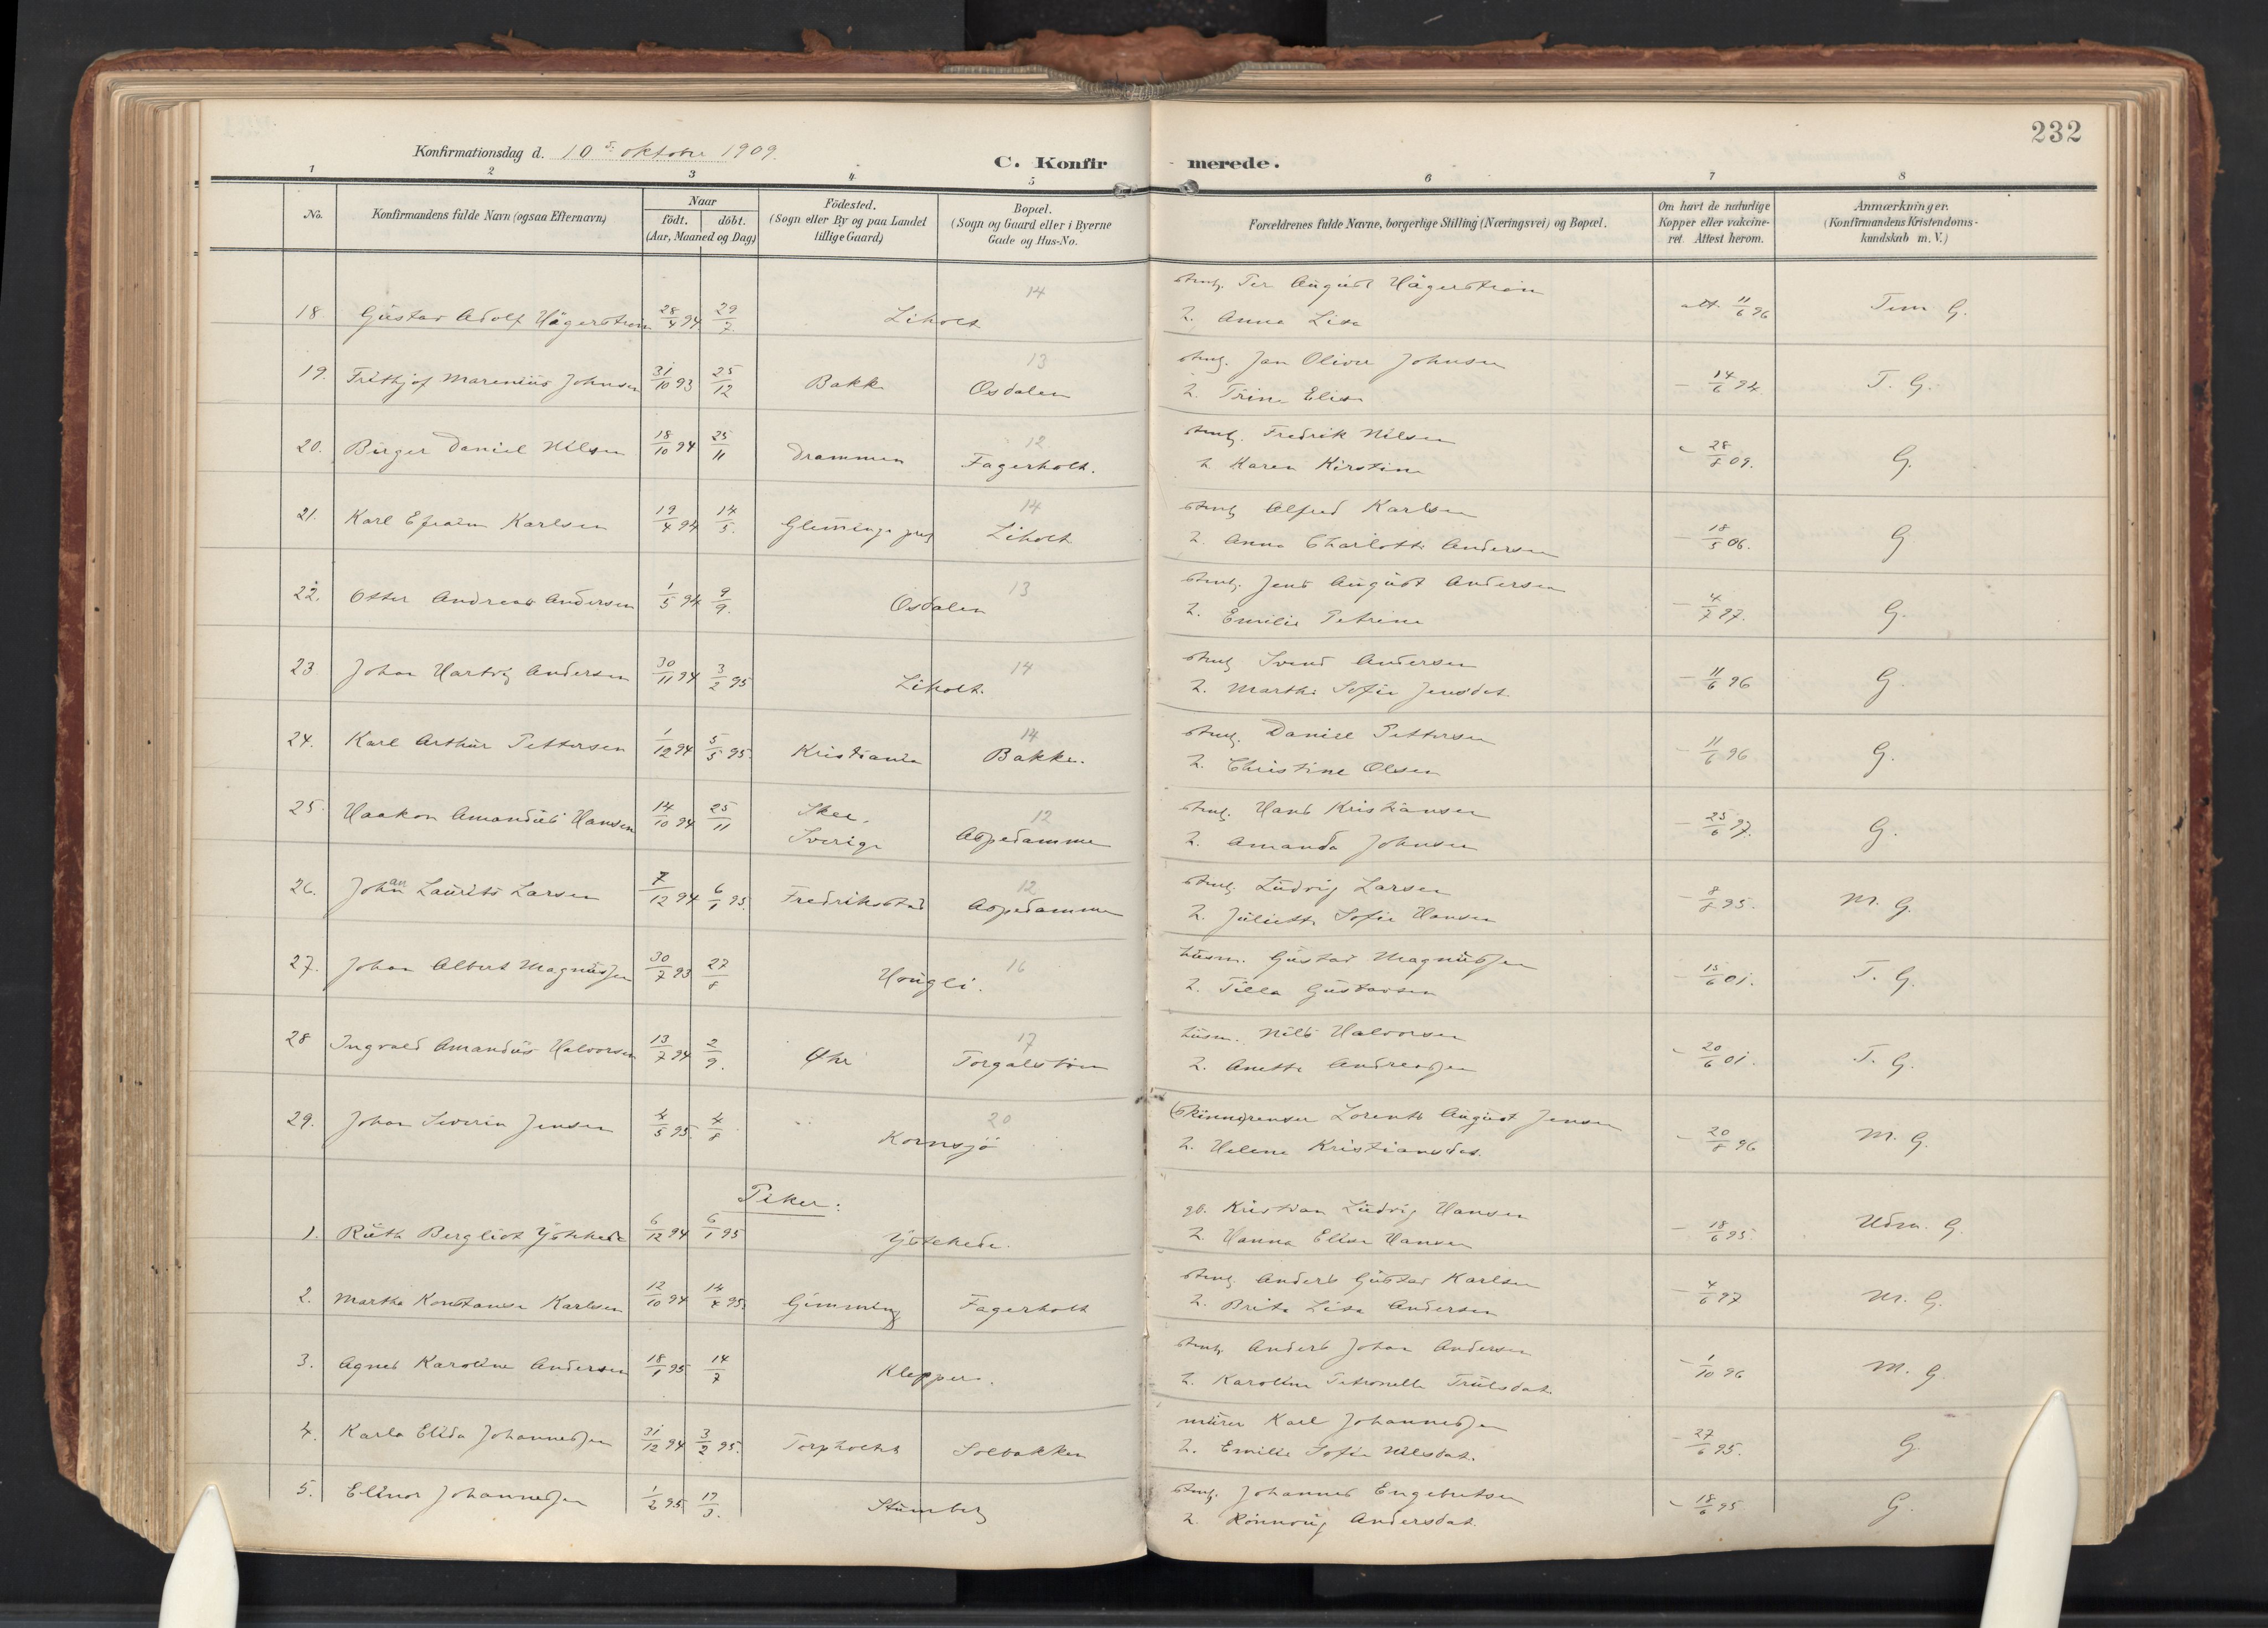 232
Konfirmationsdag d. 10 s. oktobre 1909.
C. Konfirmerede.
1 2 3 4 5 6 7 8
No. Konfirmandens fulde Navn (ogsaa Efternavn)
Naar født. døbt. (Aar, Maaned og Dag)
Fødested. (Sogn eller By og paa Landet tillige Gaard)
Bopæl. (Sogn og Gaard eller i Byerne Gade og Hus-No.
Forældrenes fulde Navne, borgerlige Stilling (Næringsvei) og Bopæl.
Om havt de naturlige Kopper eller vakcineret. Attest herom.
Anmærkninger. (Konfirmandens Kristendomskundskab m. V.)
14 Per August Hägerström
18 Gustav Adolf Hägerström 28/4 94 29/7 Liholt att. 11/6 96 Tem G.
h. Anna Lisa
13 Jan Oliver Johnsen
19. Frithjof Marenius Johnsen 31/10 93 25/12 Bakke Osdalen – 14/6 94 T. G.
h. Trine Elise
12. Fredrik Nilsen
20. Birger Daniel Nilsen 18/10 94 25/11 Drammen Fagerholt. – 28/8 09. G.
h Karen Kirstine
14 Alfred Karlsen
21. Karl Efraim Karlsen 19/4 94 14/5. Liholt – 18/5 06. G
h. Anna Charlotte Andersen
13 Jens August Andersen
22. Otter Andreas Andersen 1/5 94 9/9. Osdalen – 4/7 97. G.
h. Emilie Petrine
14 Svend Andersen
23 Johan Hartvig Andersen 30/11 94 3/2 95 Liholt. – 11/6 96 G.
h. Marthe Sofie Jensdat.
14 Daniel Pettersen
24. Karl Arthur Pettersen 1/12 94 5/5 95. Kristiania Bakke. – 11/6 96 G.
h. Christine Olsen
12 Hans Kristiansen
25. Haakon Amandus Hansen 14/10 94 25/11 Skee. Sverige Aspedammen – 25/6 97. G.
h. Amanda Johnsen
12 Ludvig Larsen
26. Johan Laurits Larsen 7/12 94 6/1 95. Fredriksstad Aspedammen – 8/8 95. M. G.
h. Juliette Sofie Hansen
16 husm. Gustav Magnussen
27. Johan Albert Magnussen 30/7 93 27/8 Hougli. – 15/6 01. T. G.
h. Tilla Gustavsen
17 husm. Nils Halvorsen
28 Ingvald Amandus Halvorsen 13/7 94 2/9. Øhr Torgalstøin – 20/6 01. T. G.
h. Anette Andreassen
20 Lorents August Jensen
29. Johan Severin Jensen 4/5 95. 4/8 Kornsjö – 20/8 96 M. G.
h. Helene Kristiansdat.
Piker:
gb. Kristian Ludvig Hansen
1. Ruth Bergliot Ystehede 6/12 94 6/1 95 Ystehede. – 18/6 95. Udm. G.
h. Hanna Elise Hansen
Anders Gustav Karlsen
2. Martha Konstanse Karlsen 12/10 94 14/4 95. Fagerholt – 4/6 97 M. G.
h. Brita Lisa Andersen
Anders Johan Andersen
3. Agnes Karoline Andersen 18/1 95 14/7 Klepper. – 1/10 96 M. G.
h. Karoline Petronelle Trulsdat.
murer Karl Johannessen
4. Karla Elida Johannessen 31/12 94 3/2 95. Torpholtet Solbakken – 27/6 95. G.
h. Emilie Sofie Nilsdat.
Johannes Engebretsen
5. Elinor Johannessen 1/2 95 17/3. – 18/6 95 G.
h. Rønnoug Andersdat.